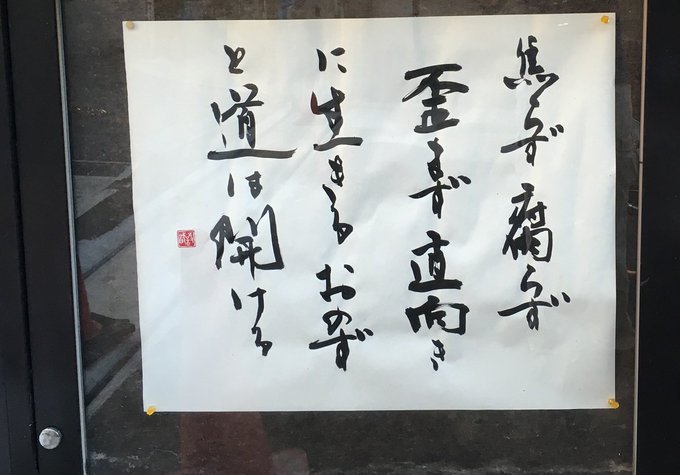 焦らず腐らず
歪まず直向き
に生きるおのず
と道は開ける